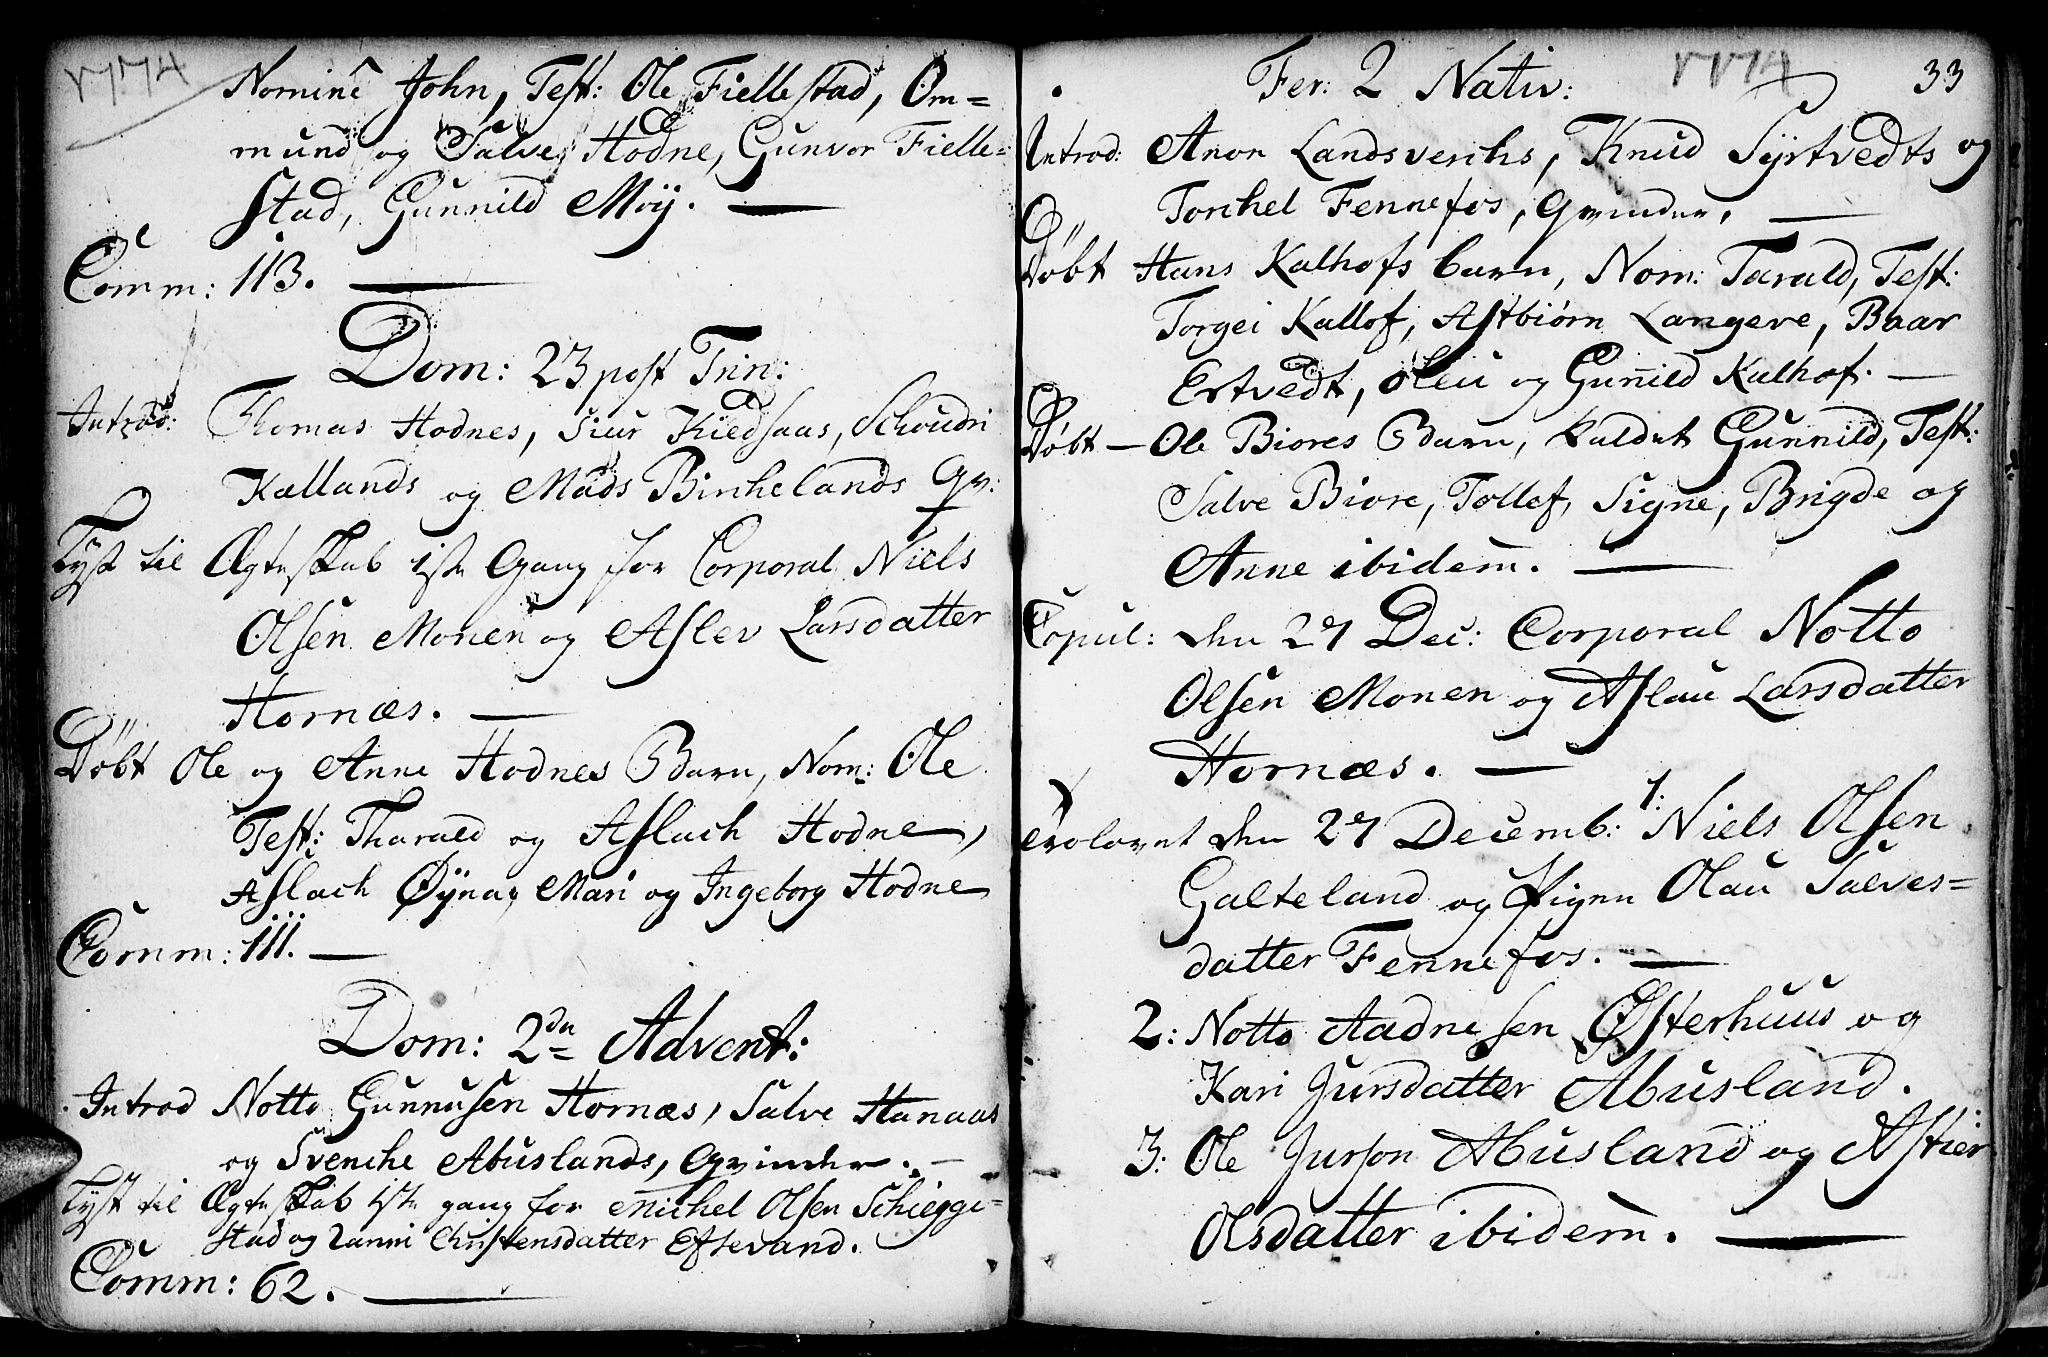 1774
Nomine John, Test: Ole Fiellestad, Om=
mund og Salve Hodne, Gunvor Fielle=
stad, Gunnild Moÿ. —
Comm: 113. —
Dom: 23 post Trin:
Introd: Thomas Hodnes, Siur Kiedsaas, Schoudri
Kallands og Mads Birchelands Qv:
Lyst til Ægteskab 1ste Gang for Corporal Niels
Olsen Monen og Aslev Larsdatter
Hornæs. —
Döbt Ole og Anne Hodnes Barn, Nom: Ole
Test: Tharald og Aslach Hodne,
Aslach Øÿna, Mari og Ingeborg Hodne
Comm: 111. —
Dom: 2den Advent:
Introd Notto Gunnusen Hornæs, Salve Hanaas
og Svenche Abuslands, Qvinder. —
Lyst til Ægteskab 1ste gang for Michel Olsen Schiegge=
stad og Christensdatter Eftevand.
Comm: 62. —
Fer: 2 Nativ: 1774 33
Introd: Anon Landsverchs, Knud Syrtvedts og
Torchel Fennefos, Qvinder, —
Döbt Hans Kalhofs barn, Nom: Tarald, Test:
Torgei Kallof, Astbiørn Langeve, Baar
Ertvedt, Oleu og Gunild Kalhof. —
Döbt — Ole Biores Barn, kaldet Gunnild, Test:
Salve Biore, Tollef, Signe, Brigde og
Anne ibidem. —
Copul: den 27 Dec: Corporal Notto
Olsen Monen og Aslau Larsdatter
Hornæs. —
Trolovet den 27 Decemb: 1: Niels Olsen
Galteland og Pigen Olau Salves=
datter Fennefos. —
2: Notto Aadnesen Østerhuus og
Kari Jursdatter Abusland.
3: Ole Jurson Abusland og Astier
Olsdatter ibidem. —